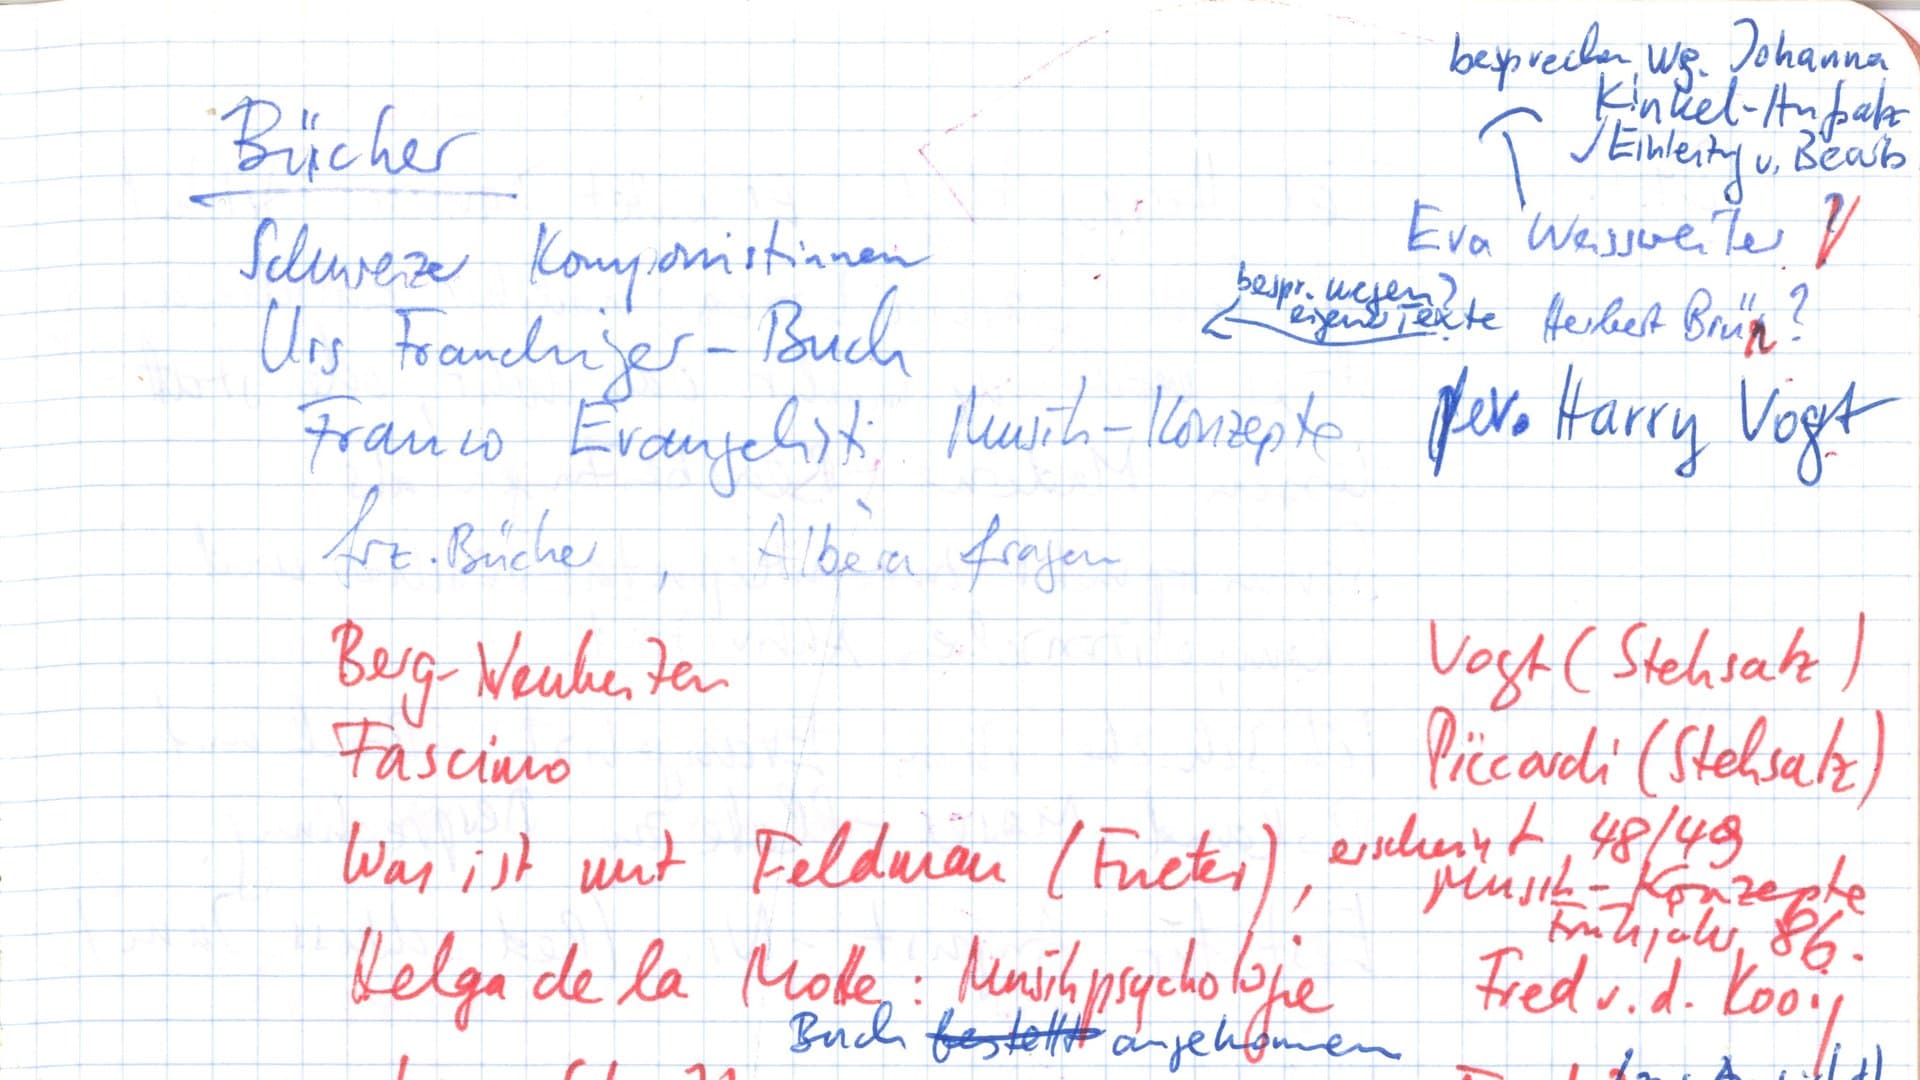 besprechen wg. Johanna
Kinkel-Aufsatz
Einleitg u. Bearb
Bücher
Eva Weissweiler ?
Schweizer Komponistinnen
bespr. wegen?
eigener Texte Herbert Brün?
Urs Frauchiger-Buch
Franco Evangelisti Musik-Konzepte
Harry Vogt
frz. Bücher, Albèra fragen
Berg-Neuheiten Vogt (Stehsatz)
Fascismo Piccardi (Stehsatz)
Was ist mit Feldman (Fueter), erscheint 48/49
Musik-Konzepte
Frühjahr 86.
Helga de la Motte: Musikpsychologie Fred v. d. Kooij
Buch bestellt angekommen